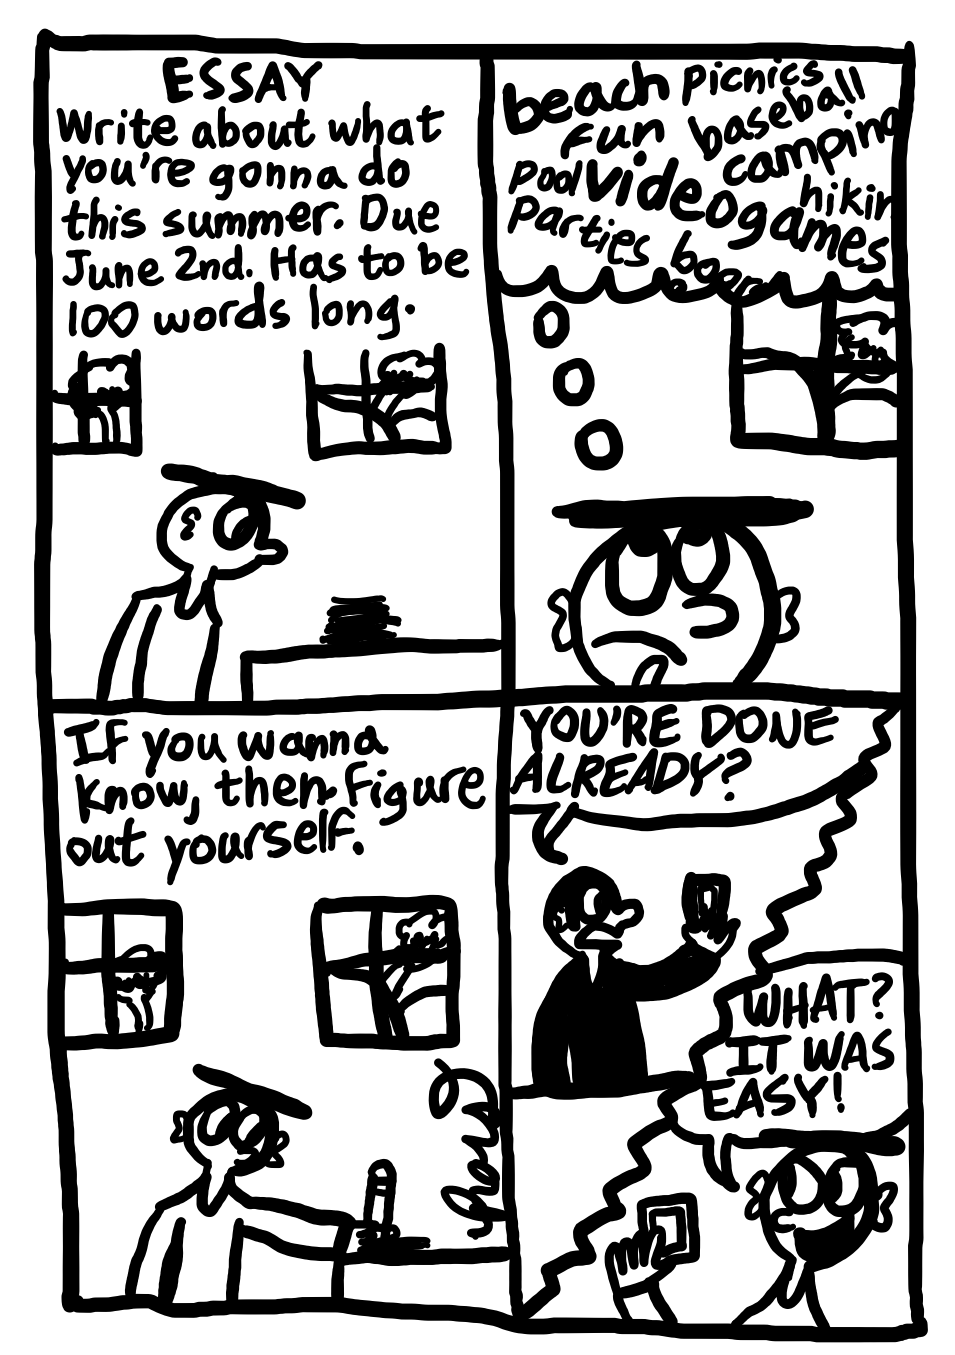 ESSAY
Write about what
you're gonna do
this summer. Due
June 2nd. Has to be
100 words long.
beach picnics
fun baseball
camping
pool videogames
hikin
parties
If you wanna
know, then figure
out yourself.
YOU'RE DONE
ALREADY?
WHAT?
IT WAS
EASY!